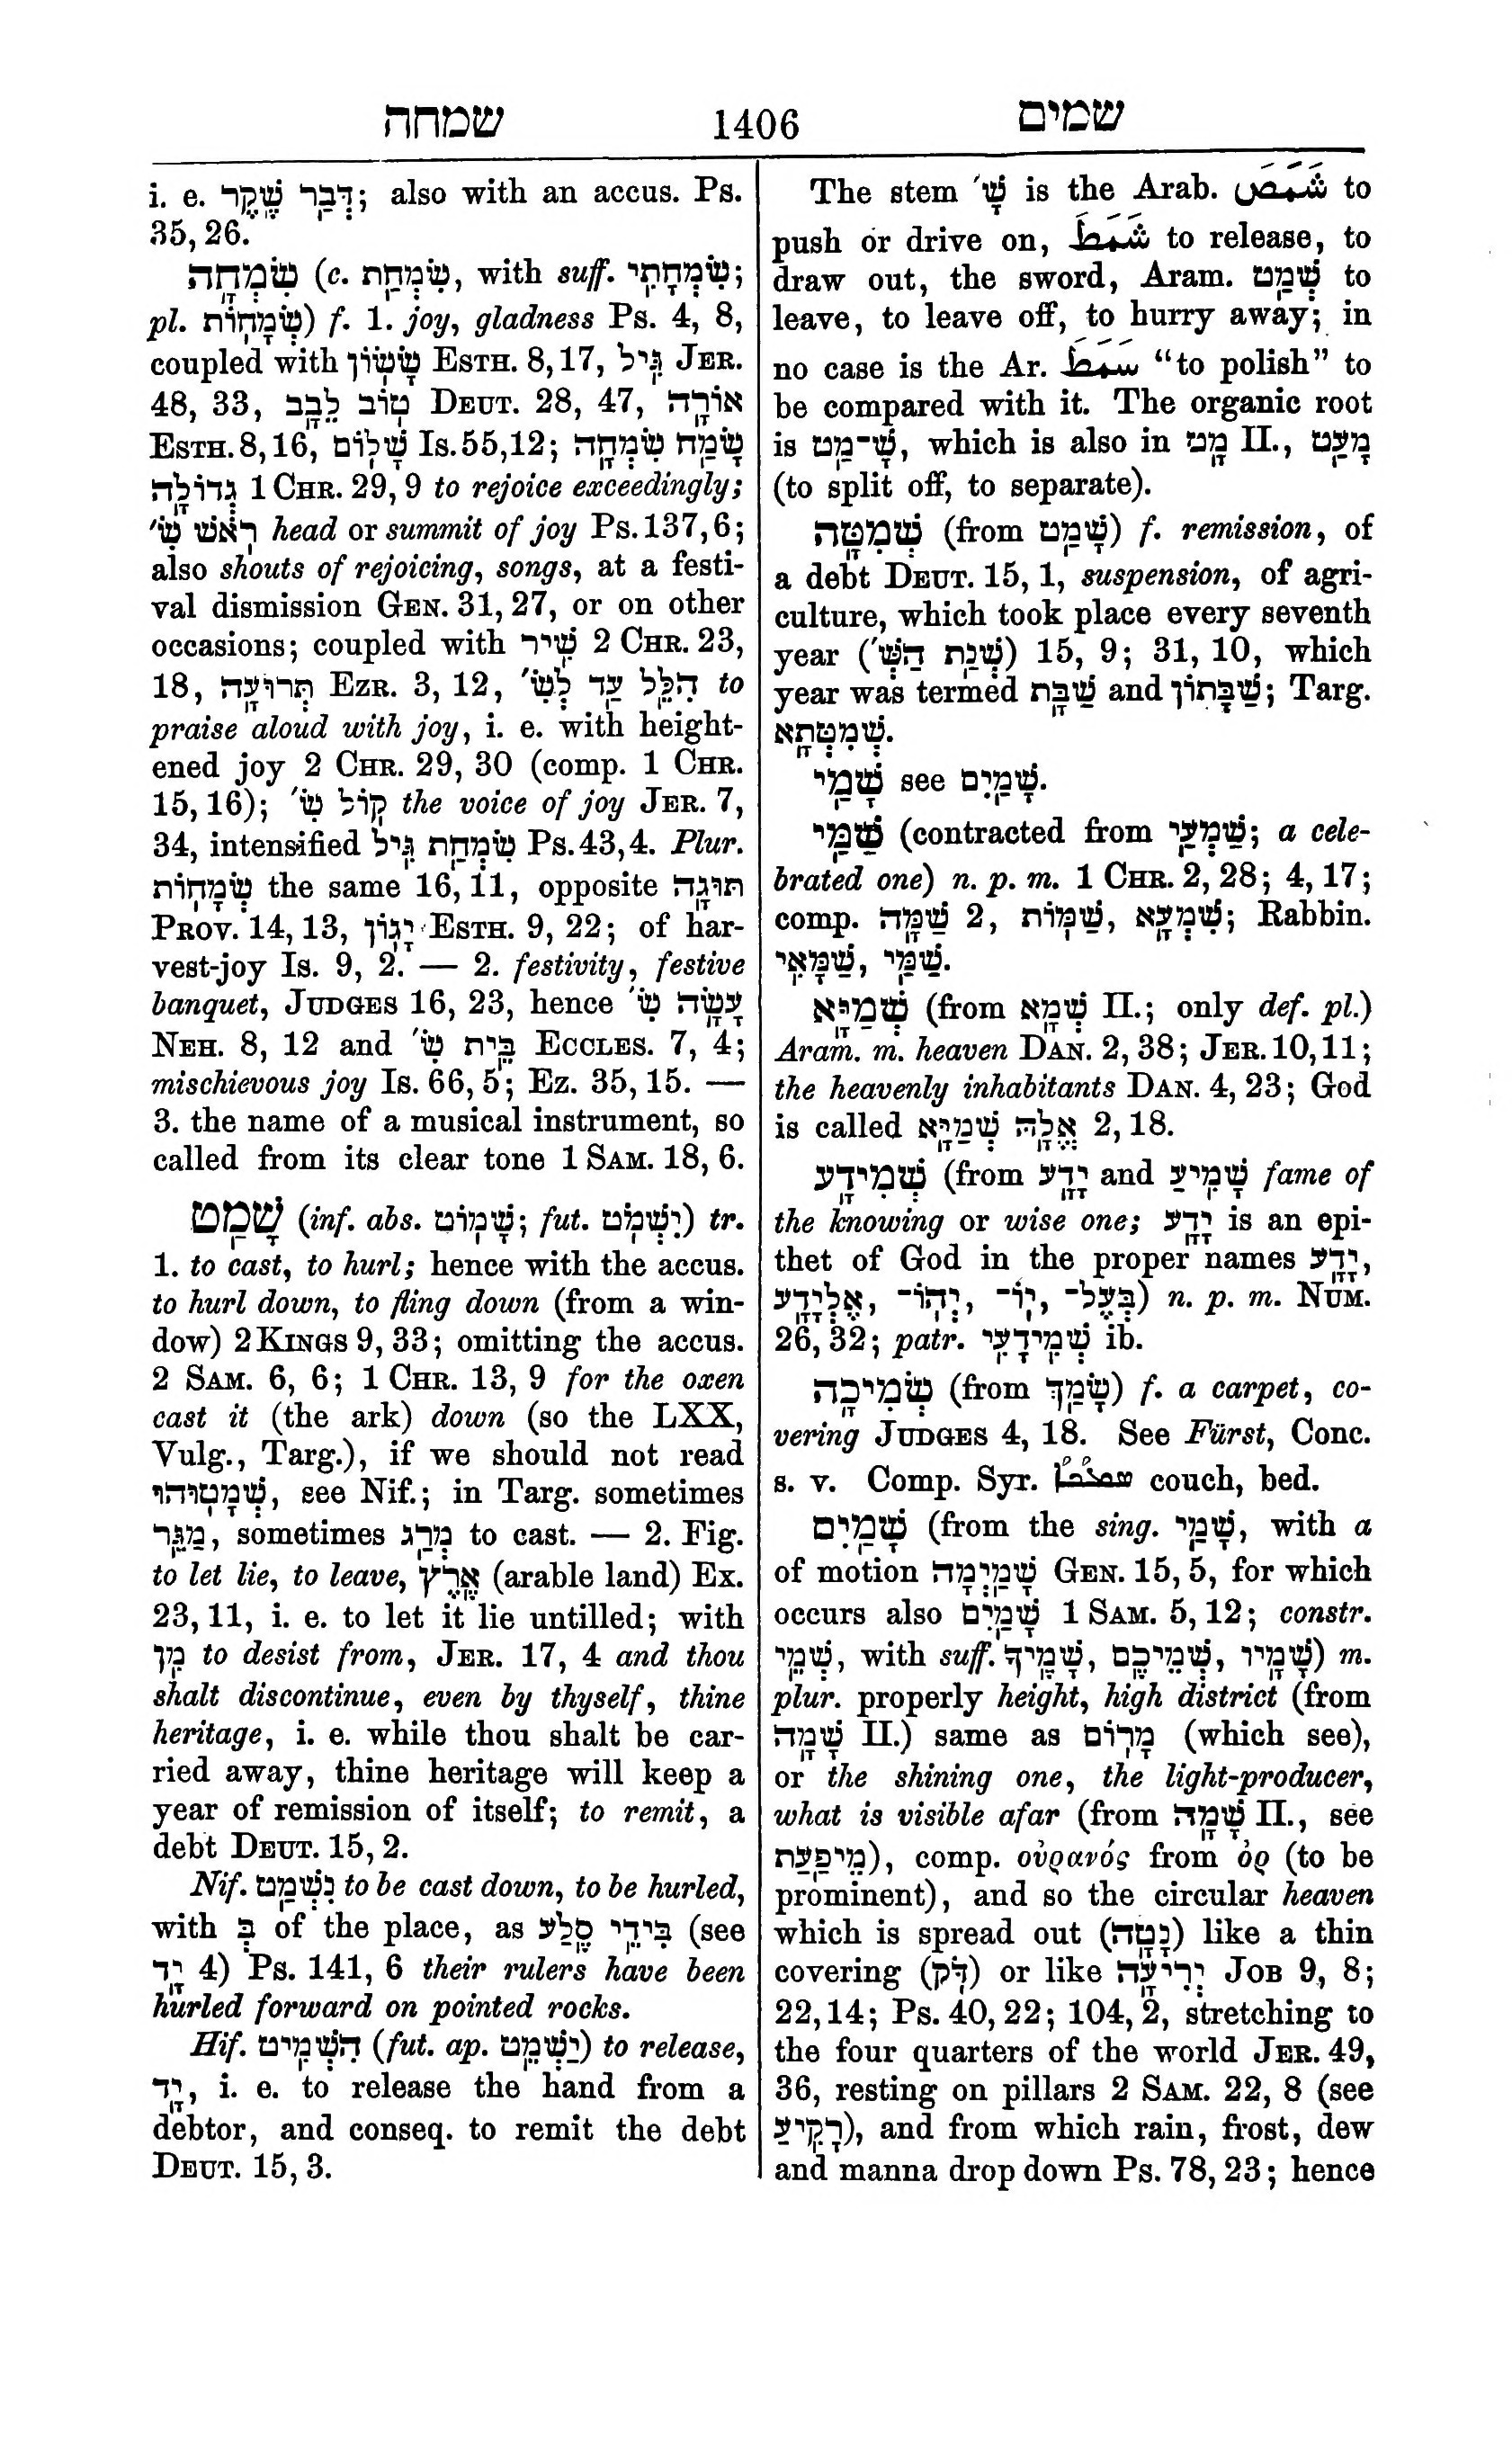 שמחה 1406 שמים
i. e. דְּבַר שֶׁקֶר; also with an accus. Ps.
35, 26.
שִׂמְחָה (c. שִׂמְחַת, with suff. שִׂמְחָתִי;
pl. שְׂמָחוֹת) f. 1. joy, gladness Ps. 4, 8,
coupled with שָׂשׂוֹן Esth. 8,17, גִּיל Jer.
48, 33, טוּב לֵבָב Deut. 28, 47, אוֹרָה
Esth. 8,16, שָׁלוֹם Is. 55,12; שָׂמַח שִׂמְחָה
גְּדוֹלָה 1 Chr. 29, 9 to rejoice exceedingly;
רֹאשׁ שִׂ׳ head or summit of joy Ps. 137, 6;
also shouts of rejoicing, songs, at a festi-
val dismission Gen. 31, 27, or on other
occasions; coupled with שִׁיר 2 Chr. 23,
18, תְּרוּעָה Ezr. 3, 12, הִלֵּל עַד לְשִׂ׳ to
praise aloud with joy, i. e. with height-
ened joy 2 Chr. 29, 30 (comp. 1 Chr.
15, 16); קוֹל שִׂ׳ the voice of joy Jer. 7,
34, intensified שִׂמְחַת גִּיל Ps. 43, 4. Plur.
שְׂמָחוֹת the same 16, 11, opposite תּוּגָה
Prov. 14, 13, יָגוֹן Esth. 9, 22; of har-
vest-joy Is. 9, 2. — 2. festivity, festive
banquet, Judges 16, 23, hence עָשָׂה שִׂ׳
Neh. 8, 12 and בֵּית שִׂ׳ Eccles. 7, 4;
mischievous joy Is. 66, 5; Ez. 35, 15. —
3. the name of a musical instrument, so
called from its clear tone 1 Sam. 18, 6.
שָׁמַט (inf. abs. שָׁמוֹט; fut. יִשְׁמֹט) tr.
1. to cast, to hurl; hence with the accus.
to hurl down, to fling down (from a win-
dow) 2 Kings 9, 33; omitting the accus.
2 Sam. 6, 6; 1 Chr. 13, 9 for the oxen
cast it (the ark) down (so the LXX,
Vulg., Targ.), if we should not read
שְׁמָטוּהוּ, see Nif.; in Targ. sometimes
מַגֵּר, sometimes מְרַג to cast. — 2. Fig.
to let lie, to leave, אֶרֶץ (arable land) Ex.
23, 11, i. e. to let it lie untilled; with
מִן to desist from, Jer. 17, 4 and thou
shalt discontinue, even by thyself, thine
heritage, i. e. while thou shalt be car-
ried away, thine heritage will keep a
year of remission of itself; to remit, a
debt Deut. 15, 2.
Nif. נִשְׁמַט to be cast down, to be hurled,
with בְּ of the place, as בִּידֵי סֶלַע (see
יָד 4) Ps. 141, 6 their rulers have been
hurled forward on pointed rocks.
Hif. הִשְׁמִיט (fut. ap. יַשְׁמֵט) to release,
יָד, i. e. to release the hand from a
debtor, and conseq. to remit the debt
Deut. 15, 3.
The stem שָׁ׳ is the Arab. شَمَصَ to
push or drive on, شَمَطَ to release, to
draw out, the sword, Aram. שְׁמַט to
leave, to leave off, to hurry away; in
no case is the Ar. سَمَطَ “to polish” to
be compared with it. The organic root
is שָׁ־מַט, which is also in מָט II., מָעַט
(to split off, to separate).
שְׁמִטָּה (from שָׁמַט) f. remission, of
a debt Deut. 15, 1, suspension, of agri-
culture, which took place every seventh
year (שְׁנַת הַשְּׁ׳) 15, 9; 31, 10, which
year was termed שַׁבָּת and שַׁבָּתוֹן; Targ.
שְׁמִטְּתָא.
שָׁמַי see שָׁמַיִם.
שַׁמַּי (contracted from שַׁמְעַי; a cele-
brated one) n. p. m. 1 Chr. 2, 28; 4, 17;
comp. שַׁמָּה 2, שַׁמּוֹת, שִׁמְעָא; Rabbin.
שַׁמַּי, שַׁמָּאִי.
שְׁמַיָּא (from שְׁמָא II.; only def. pl.)
Aram. m. heaven Dan. 2, 38; Jer. 10, 11;
the heavenly inhabitants Dan. 4, 23; God
is called אֱלָהּ שְׁמַיָּא 2, 18.
שְׁמִידָע (from יָדָע and שָׁמִיעַ fame of
the knowing or wise one; יָדָע is an epi-
thet of God in the proper names יָדָע,
אֶלְיָדָע, יְהוֹ־, יוֹ־, בְּעֶל־) n. p. m. Num.
26, 32; patr. שְׁמִידָעִי ib.
שְׂמִיכָה (from שָׂמַךְ) f. a carpet, co-
vering Judges 4, 18. See Fürst, Conc.
s. v. Comp. Syr. couch, bed.
שָׁמַיִם (from the sing. שָׁמַי, with a
of motion שָׁמַיְמָה Gen. 15, 5, for which
occurs also שָׁמַיִם 1 Sam. 5, 12; constr.
שְׁמֵי, with suff. שָׁמֶיךָ, שְׁמֵיכֶם, שָׁמָיו) m.
plur. properly height, high district (from
שָׁמָה II.) same as מָרוֹם (which see),
or the shining one, the light-producer,
what is visible afar (from שָׁמָה II., see
מֵיפַעַת), comp. οὐρανός from ὀρ (to be
prominent), and so the circular heaven
which is spread out (נָטָה) like a thin
covering (דֹּק) or like יְרִיעָה Job 9, 8;
22, 14; Ps. 40, 22; 104, 2, stretching to
the four quarters of the world Jer. 49,
36, resting on pillars 2 Sam. 22, 8 (see
רָקִיעַ), and from which rain, frost, dew
and manna drop down Ps. 78, 23; hence